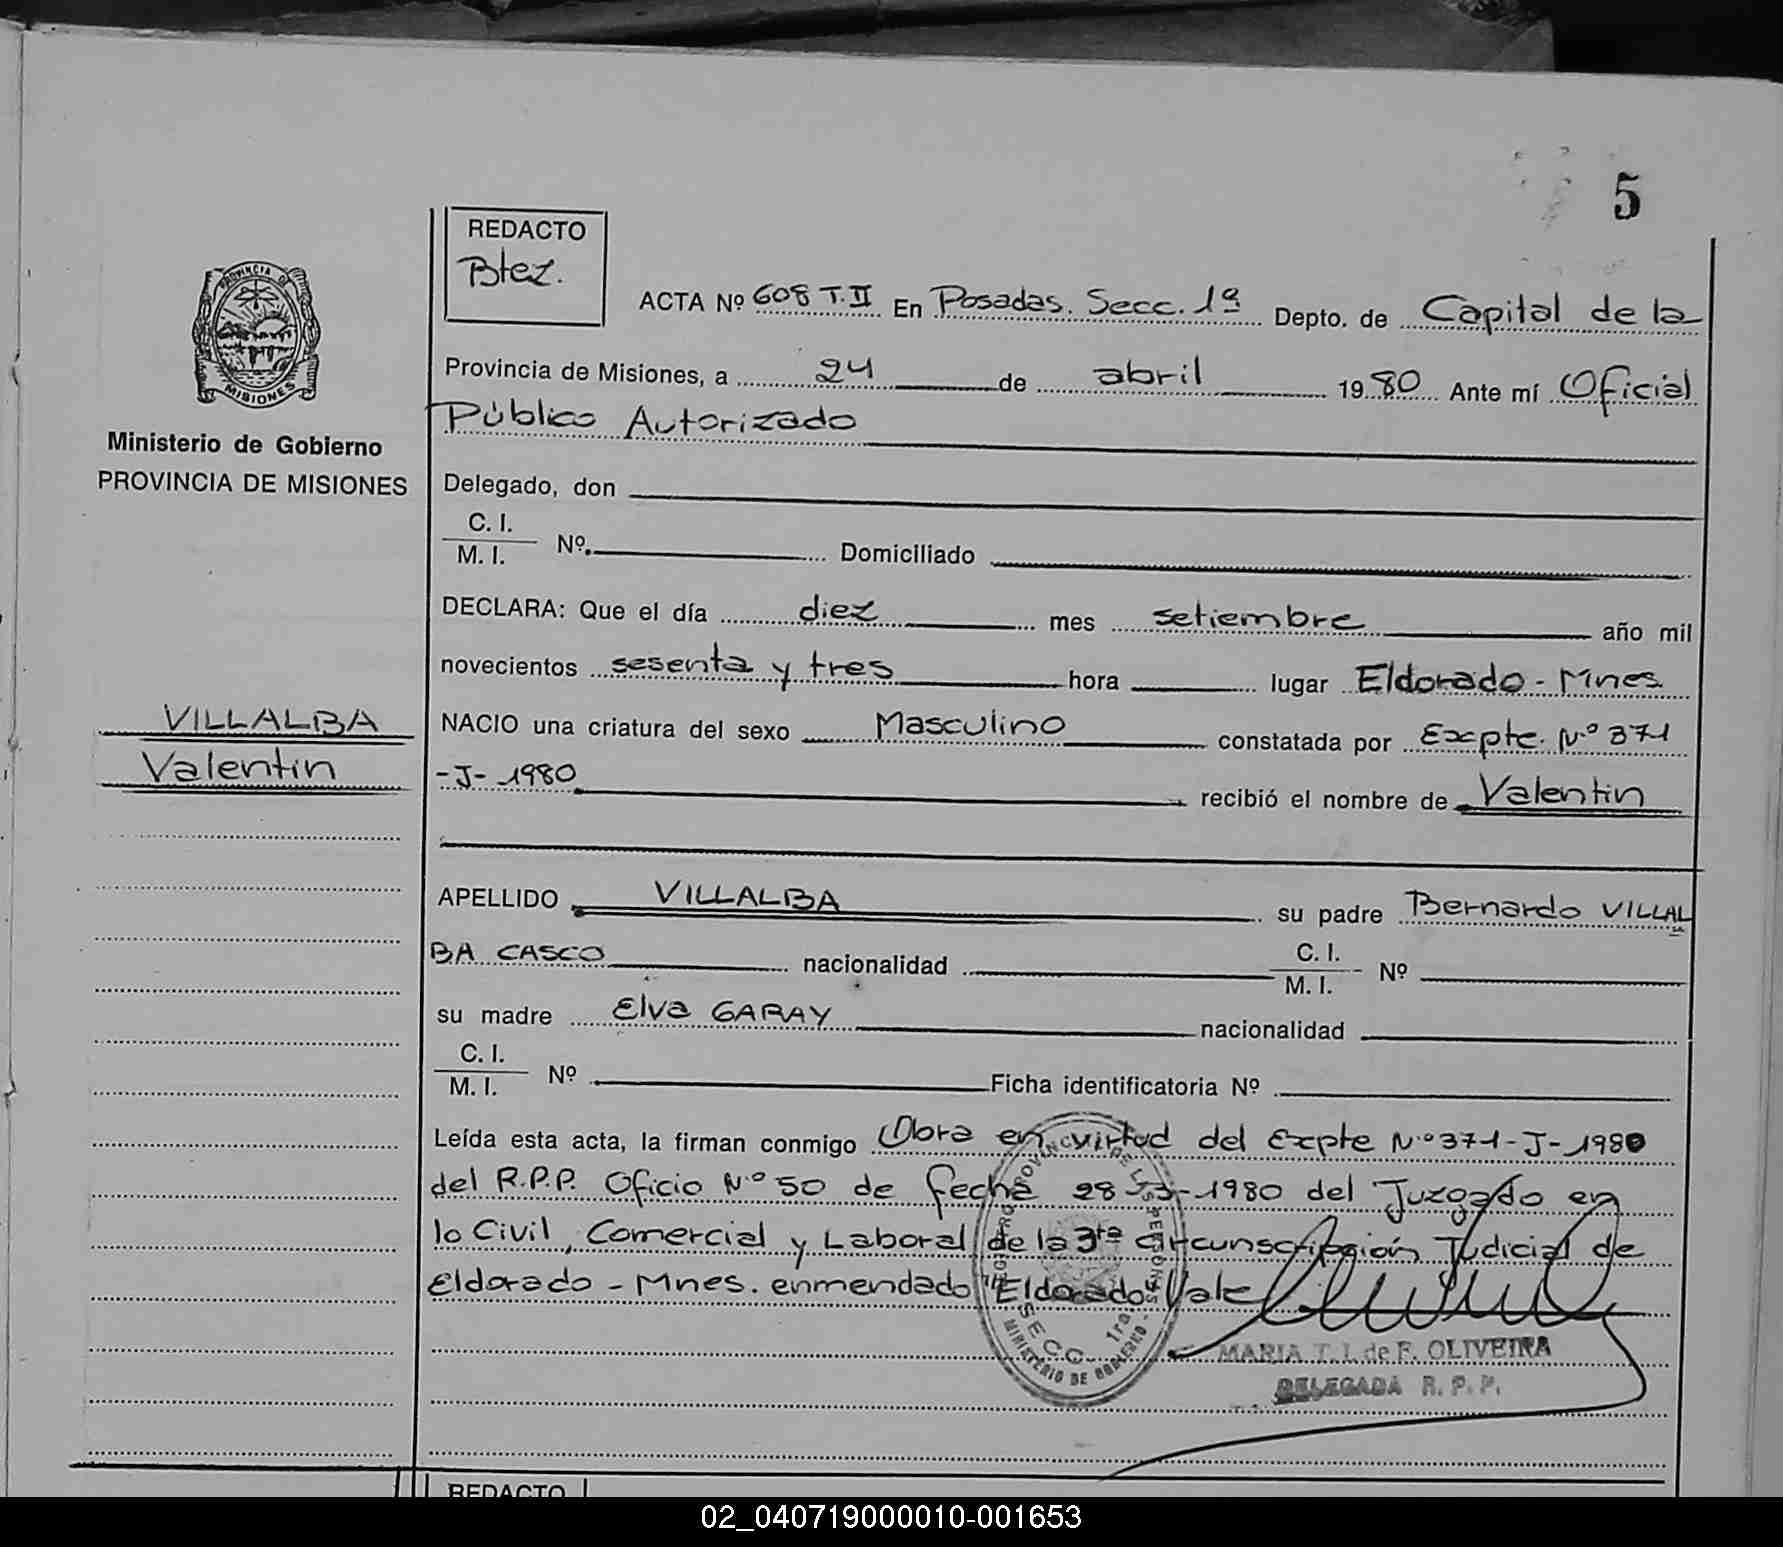 5
REDACTO
Btez.
ACTA Nº 608 T.II En Posadas. Secc. 1ª Depto. de Capital de la
Provincia de Misiones, a 24 de abril 1980 Ante mí Oficial
Público Autorizado
PROVINCIA DE
MISIONES
Ministerio de Gobierno
PROVINCIA DE MISIONES
Delegado, don
C. I.
M. I. Nº. Domiciliado
DECLARA: Que el día diez mes setiembre año mil
novecientos sesenta y tres hora lugar Eldorado - Mnes.
VILLALBA
Valentin
NACIO una criatura del sexo Masculino constatada por Excpte. Nº 371
-J- 1980 recibió el nombre de Valentin
APELLIDO VILLALBA su padre Bernardo VILLAL
BA CASCO nacionalidad C. I. M. I. Nº
su madre Elva GARAY nacionalidad
C. I.
M. I. Nº Ficha identificatoria Nº
Leída esta acta, la firman conmigo Obra en virtud del Excpte Nº 371-J-1980
del R.P.P. Oficio Nº 50 de fecha 28-3-1980 del Juzgado en
lo Civil, Comercial y Laboral de la 3ra circunscripción Judicial de
Eldorado - Mnes. enmendado "Eldorado" Vale
SECC. 1ra.
MINISTERIO DE GOBIERNO
MARIA T. I. de F. OLIVEIRA
DELEGADA R. P. P.
REDACTO
02_040719000010-001653